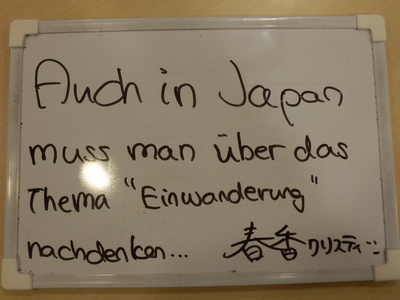 Auch in Japan
muss man über das
Thema "Einwanderung"
nachdenken... 春香クリスティーン